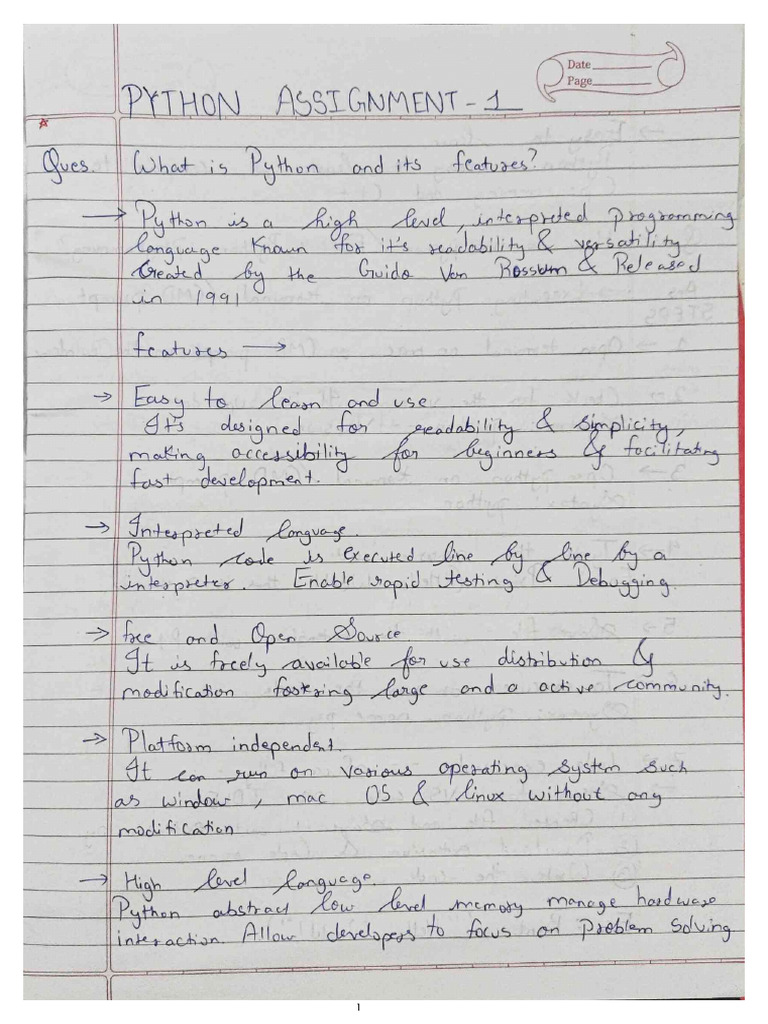 Date
Page
PYTHON ASSIGNMENT - 1
Ques. What is Python and its features?
→ Python is a high level, interpreted programming
language Known for it's readability & versatility
Created by the Guido Van Rossum & Released
in 1991
features →
→ Easy to learn and use
It's designed for readability & simplicity,
making accessibility for beginners & facilitating
fast development.
→ Interpreted language.
Python code is executed line by line by a
interpreter. Enable rapid testing & Debugging.
→ free and Open Source.
It is freely available for use distribution &
modification fostering large and a active community.
→ Platform independent.
It can run on various operating system such
as window, mac OS & linux without any
modification
→ High level language.
Python abstract low level memory manage hardware
interaction. Allow developers to focus on Problem Solving
1